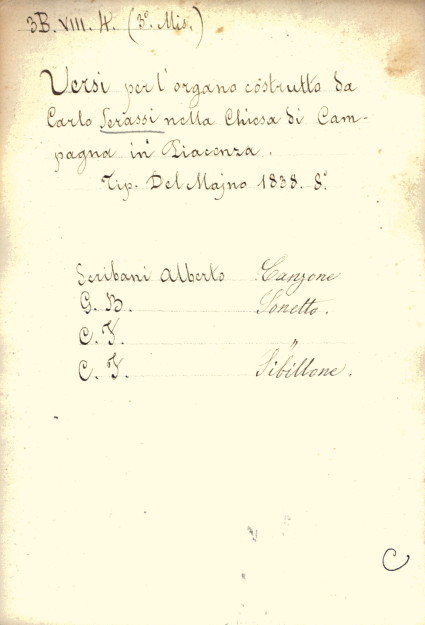 3B. VIII. 4. (3º Mis.)
Versi per l'organo costrutto da
Carlo Serassi nella Chiesa di Cam-
pagna in Piacenza.
Tip. Del Majno 1838. 8º.
Scribani Alberto Canzone
G. B. Sonetto.
C. F. "
C. F. Sibillone.
C